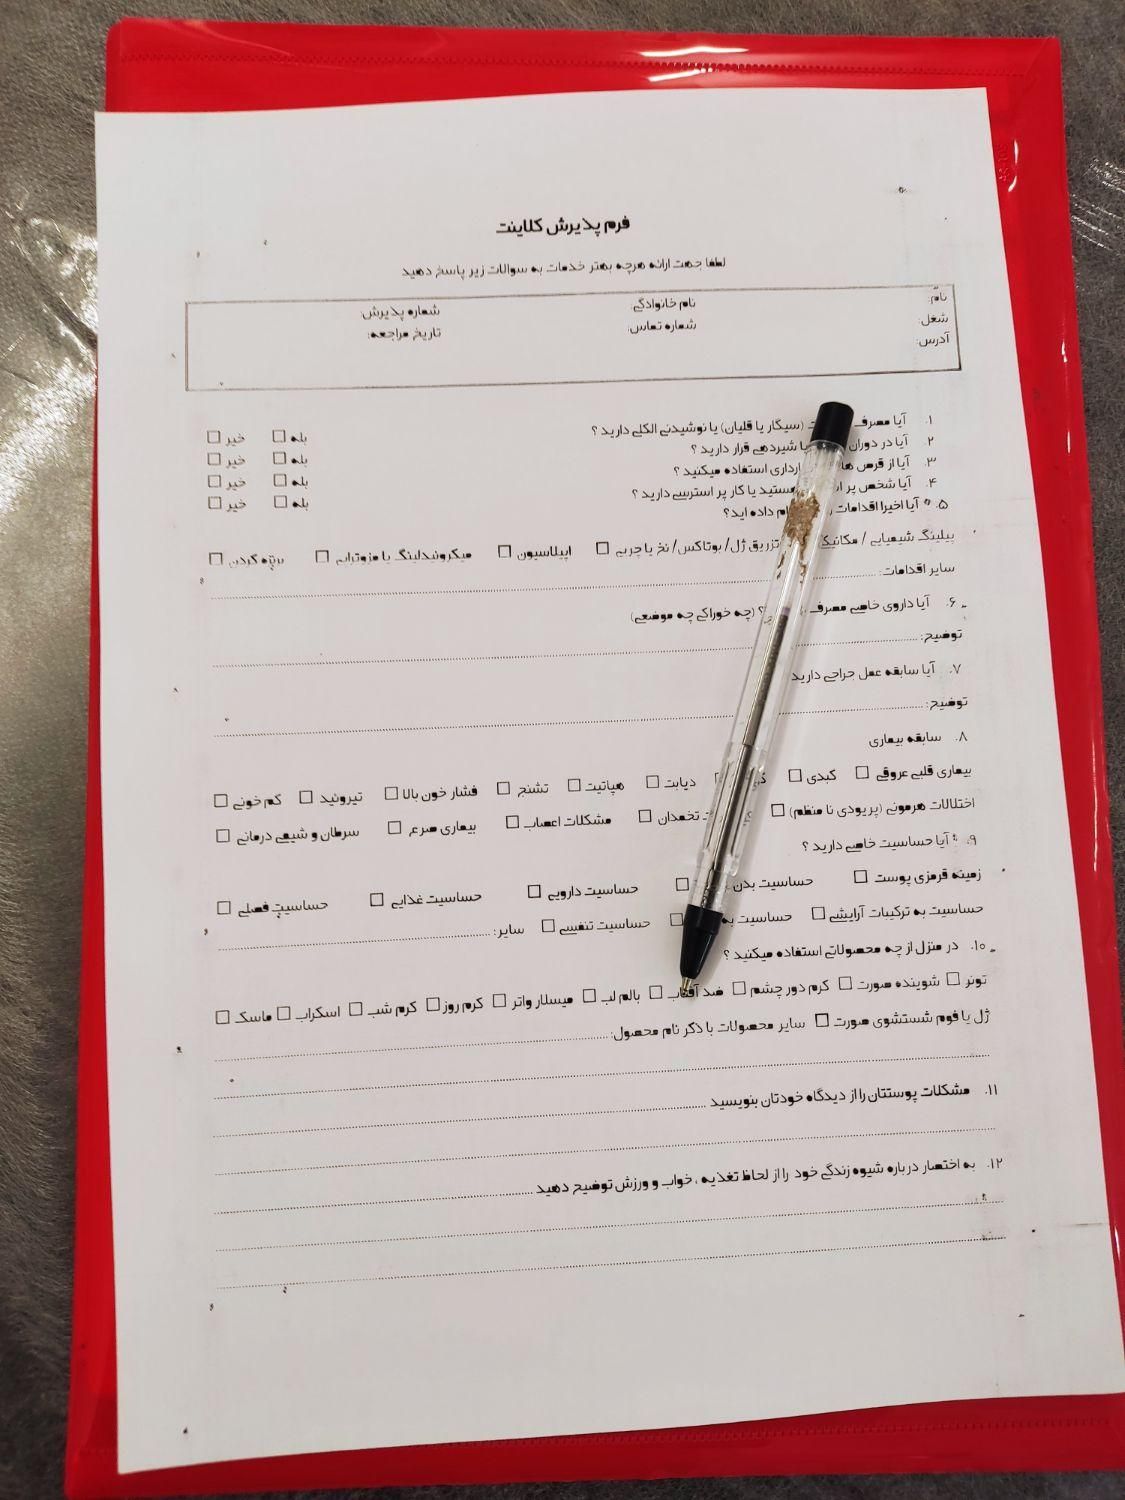 فرم پذیرش کلاینت
لطفا جهت ارائه هرچه بهتر خدمات به سوالات زیر پاسخ دهید
نام: نام خانوادگی: شماره پذیرش:
شغل: شماره تماس: تاریخ مراجعه:
آدرس:
۱. آیا مصرف (سیگار یا قلیان) یا نوشیدنی الکلی دارید؟ بله □ خیر □
۲. آیا در دوران یا شیردهی قرار دارید؟ بله □ خیر □
۳. آیا از قرص استفاده میکنید؟ بله □ خیر □
۴. آیا شخص پر هستید یا کار پر استرسی دارید؟ بله □ خیر □
۵. آیا اخیرا اقدامات داده اید؟
پیلینگ شیمیایی / تزریق ژل/ بوتاکس/ نخ یا چربی □ اپیلاسیون □ میکرونیدلینگ یا مزوتراپی □ برنزه کردن □
سایر اقدامات:
۶. آیا داروی خاصی مصرف (چه خوراکی چه موضعی)
توضیح:
۷. آیا سابقه عمل جراحی دارید
توضیح:
۸. سابقه بیماری
بیماری قلبی عروقی □ کبدی □ دیابت □ هپاتیت □ تشنج □ فشار خون بالا □ تیروئید □ کم خونی □
اختلالات هرمونی (پریودی نا منظم) □ تخمدان □ مشکلات اعصاب □ بیماری صرع □ سرطان و شیمی درمانی □
۹. آیا حساسیت خاصی دارید؟
زمینه قرمزی پوست □ حساسیت بدن □ حساسیت دارویی □ حساسیت غذایی □ حساسیت فصلی □
حساسیت به ترکیبات آرایشی □ حساسیت به □ حساسیت تنفسی □ سایر:
۱۰. در منزل از چه محصولاتی استفاده میکنید؟
تونر □ شوینده صورت □ کرم دور چشم □ ضد آفتاب □ بالم لب □ میسلار واتر □ کرم روز □ کرم شب □ اسکراب □ ماسک □
ژل یا فوم شستشوی صورت □ سایر محصولات با ذکر نام محصول:
۱۱. مشکلات پوستتان را از دیدگاه خودتان بنویسید
۱۲. به اختصار درباره شیوه زندگی خود را از لحاظ تغذیه، خواب و ورزش توضیح دهید